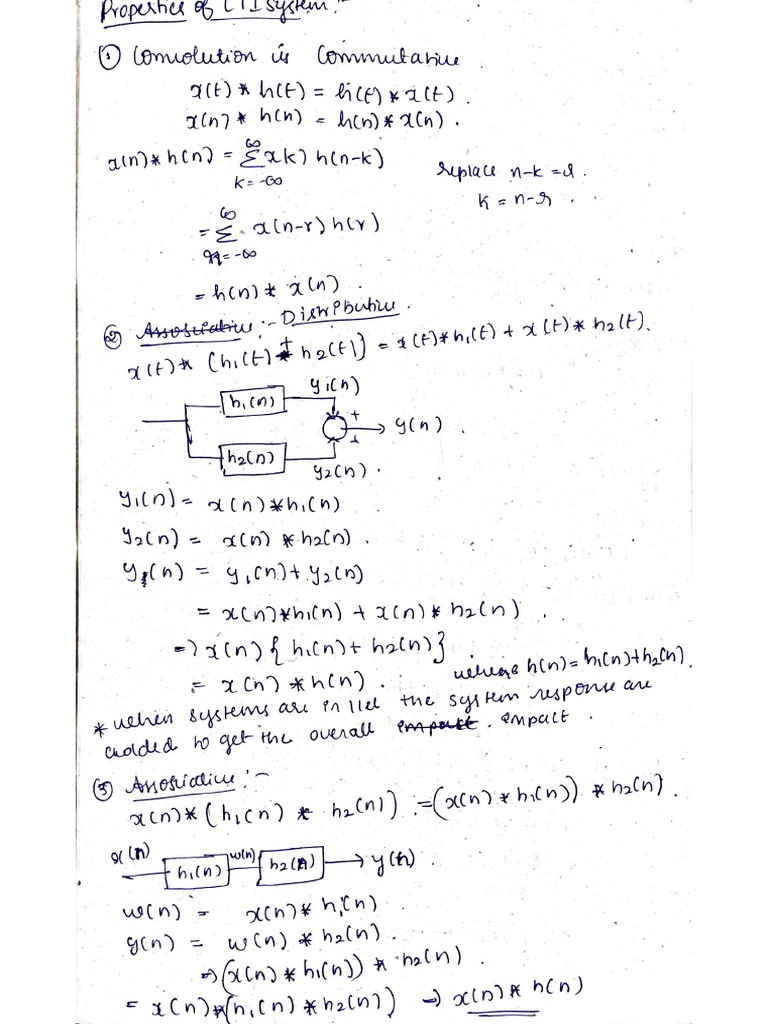 Properties of LTI System :-
① Convolution is Commutative
x(t) * h(t) = h(t) * x(t).
x(n) * h(n) = h(n) * x(n).
x(n) * h(n) = ∞ Σ k=-∞ x(k) h(n-k)
replace n-k = r.
k = n-r.
= ∞ Σ r=-∞ x(n-r) h(r)
= h(n) * x(n).
② Assosiative :- Distributive.
x(t) * {h1(t) + h2(t)} = x(t) * h1(t) + x(t) * h2(t).
y1(n)
h1(n)
+
y(n).
+
h2(n)
y2(n).
y1(n) = x(n) * h1(n)
y2(n) = x(n) * h2(n).
y(n) = y1(n) + y2(n)
= x(n) * h1(n) + x(n) * h2(n).
=> x(n) { h1(n) + h2(n) }
= x(n) * h(n). where h(n) = h1(n) + h2(n).
* when systems are in llel the system response are
added to get the overall impact. impact.
③ Assosiative :-
x(n) * (h1(n) * h2(n)) = (x(n) * h1(n)) * h2(n).
x(n) h1(n) w(n) h2(n) → y(n).
w(n) = x(n) * h1(n)
y(n) = w(n) * h2(n).
→ (x(n) * h1(n)) * h2(n).
= x(n) * (h1(n) * h2(n)) → x(n) * h(n)